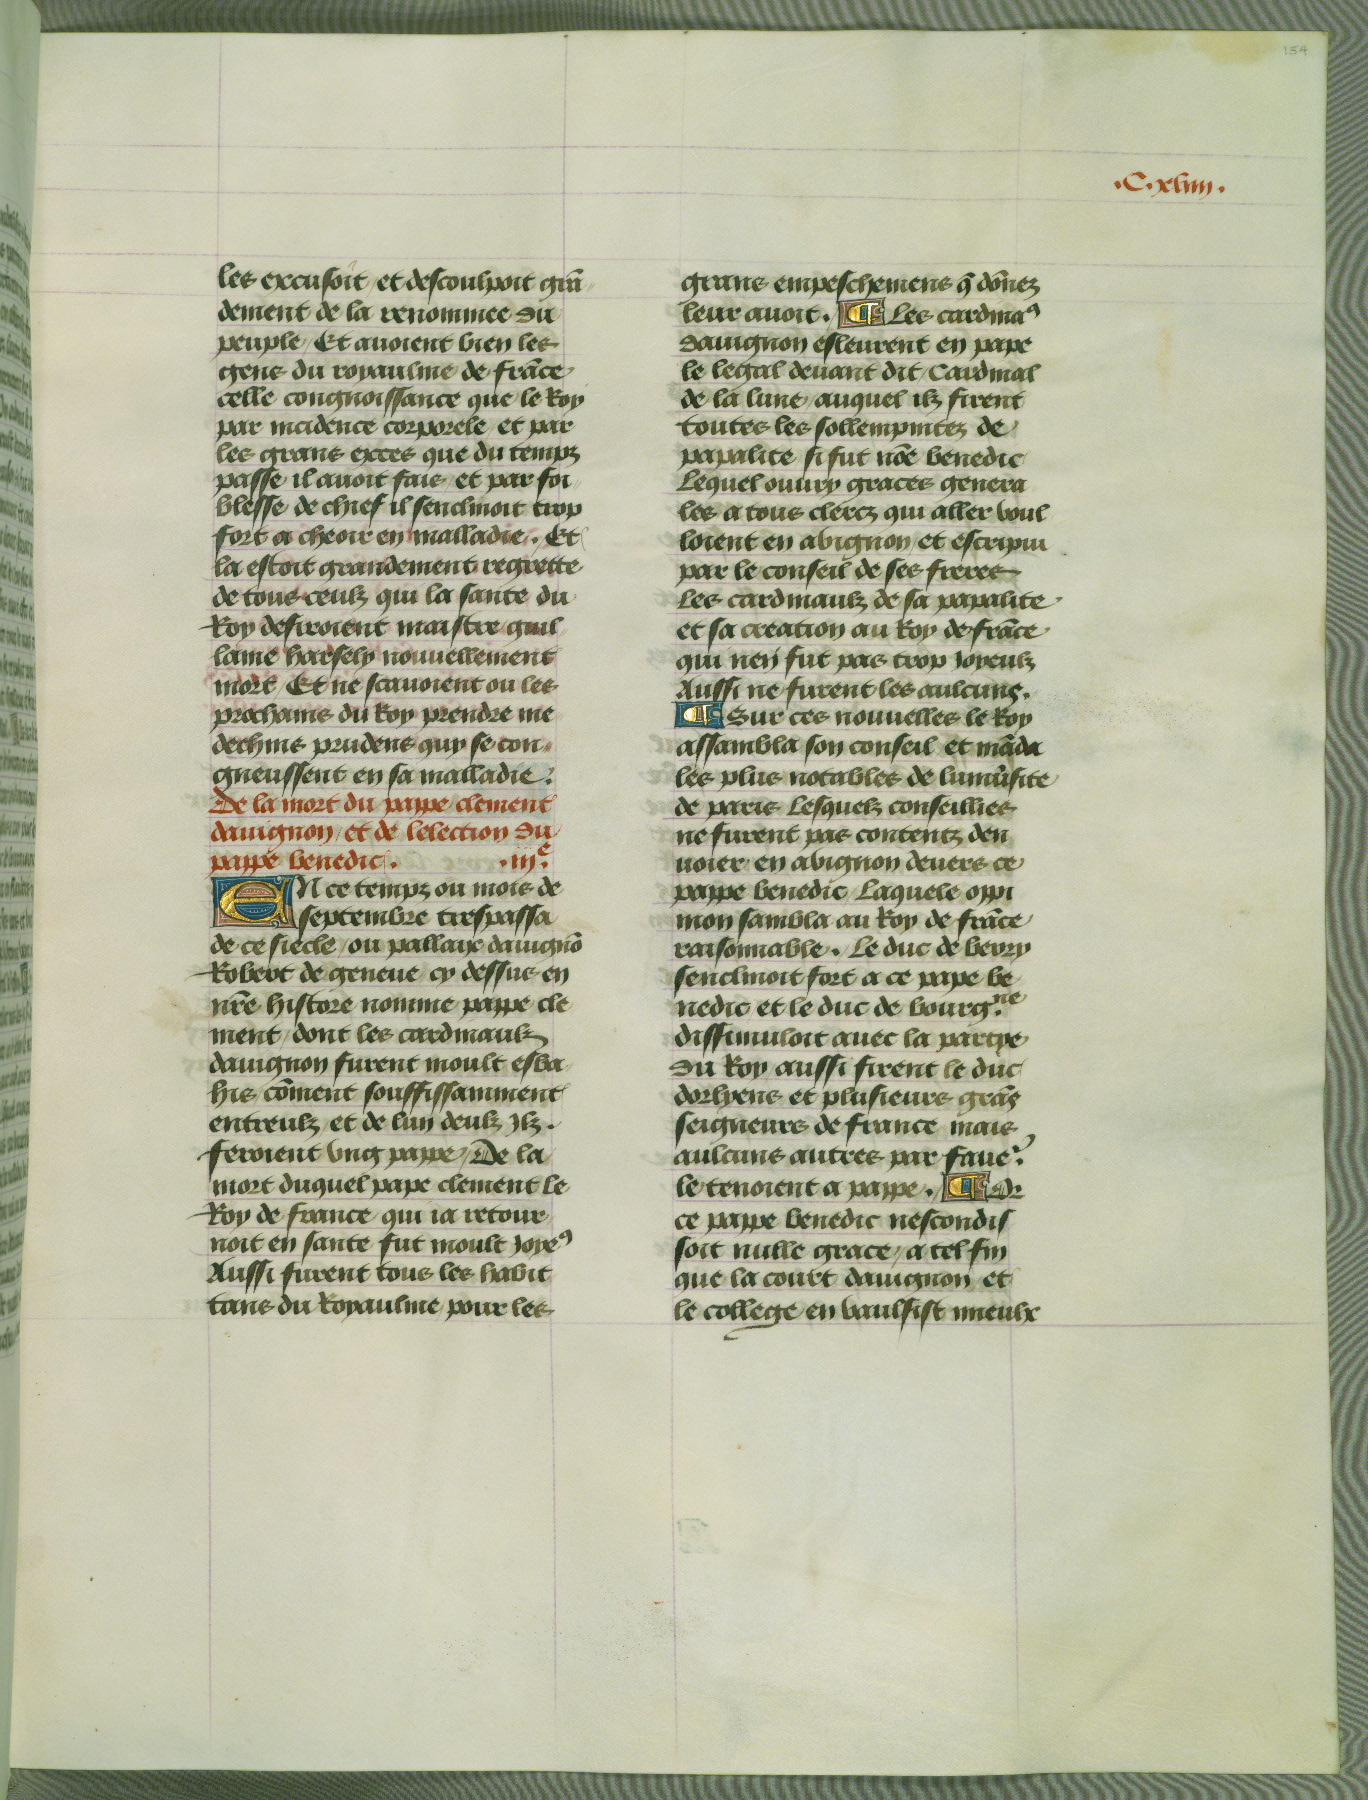 154
.C.xliiii.
les excusoit et descoulpoit grā
dement de la renommee du
peuple Et auoient bien les
gens du royaulme de frāce
celle congnoissance que le Roy
par incidence corporele et par
les grans exces que du temps
passe il auoit fais et par foi
blesse de chief il senclinoit trop
fort a cheoir en malladie. Et
la estoit grandement regrette
de tous ceulz qui la sante du
Roy desiroient maistre guil
lame harsely nouuellement
mort Et ne scauoient ou les
prochains du Roy prendre me
dechins prudens quy se con
gneussent en sa malladie.
De la mort du pappe clement
dauignon et de lelection du
pappe benedic. .iiij.e
EN ce temps ou mois de
septembre trespassa
de ce siecle ou pallaix dauignō
Robert de geneue cy dessus en
nr̄e histore nomme pappe cle
ment dont les cardinaulz
dauignon furent moult esba
his cōment souffissamment
entreulz et de lun deulz Ilz.
feroient vng pappe De la
mort duquel pape clement le
Roy de france qui ia retour
noit en sante fut moult Joye9
Aussi furent tous les habit
tans du Royaulme pour les
grans empeschemens q̄ dōnez
leur auoit. ¶ Les cardina9
dauignon esleurent en pape
le legal deuant dit Cardinal
de la lune auquel ilz firent
toutes les sollempnitez de
papalite si fut nōe benedic
Lequel ouury graces genera
les a tous clercz qui aller voul
loient en abignon et escripui
par le conseil de ses freres
Les cardinaulz de sa papalite
et sa creation au Roy de frāce
qui nen fut pas trop Joyeulz
Aussi ne furent les aulcuns.
¶ Sur ces nouuelles le Roy
assambla son conseil et māda
les plus notables de luniūsite
de paris Lesquelz conseillies
ne furent pas contentz den
uoier en abignon deuers ce
pappe benedic Laquele oppi
nion sambla au Roy de frāce
raisonnable. Le duc de berry
senclinoit fort a ce pape be
nedic et le duc de bourg.ne
dissimuloit auec la partye
du Roy aussi firent le duc
dorlyens et plusieurs grās
seigneurs de france mais
aulcuns autres par faue.̉
le tenoient a pappe. ¶ Dr
ce pappe benedic nescondis
soit nulle grace a tel fin
que la court dauignon et
le college en vaulsist mieulx